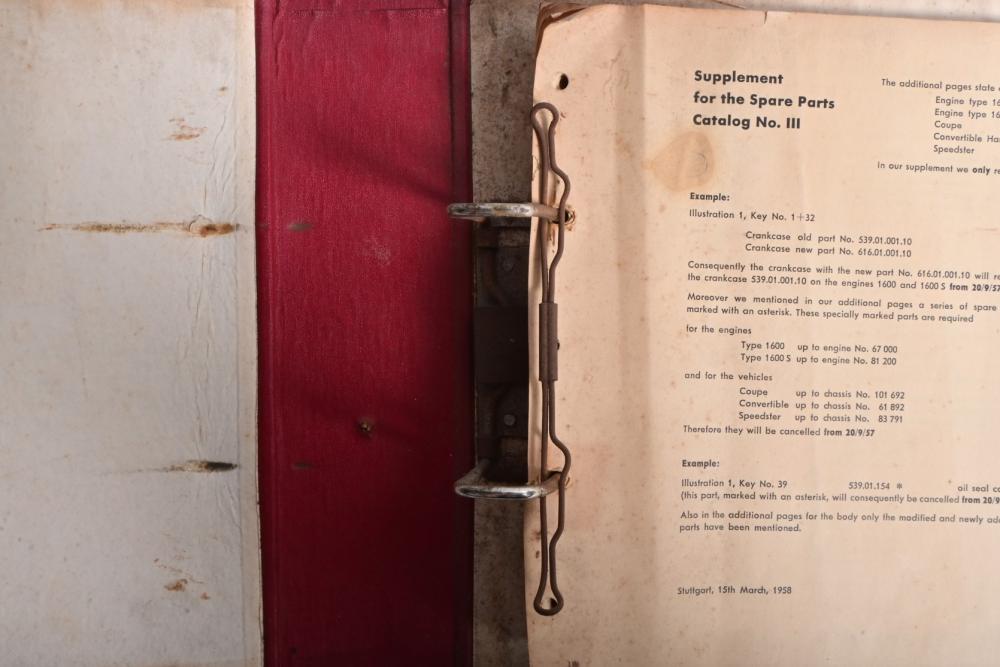 Supplement
for the Spare Parts
Catalog No. III
The additional pages state
Engine type
Engine type
Coupe
Convertible
Speedster
In our supplement we only
Example:
Illustration 1, Key No. 1+32
Crankcase old part No. 539.01.001.10
Crankcase new part No. 616.01.001.10
Consequently the crankcase with the new part No. 616.01.001.10 will
the crankcase 539.01.001.10 on the engines 1600 and 1600 S from 20/9/57
Moreover we mentioned in our additional pages a series of spare
marked with an asterisk. These specially marked parts are required
for the engines
Type 1600 up to engine No. 67 000
Type 1600 S up to engine No. 81 200
and for the vehicles
Coupe up to chassis No. 101 692
Convertible up to chassis No. 61 892
Speedster up to chassis No. 83 791
Therefore they will be cancelled from 20/9/57
Example:
Illustration 1, Key No. 39 539.01.154 * oil seal
(this part, marked with an asterisk, will consequently be cancelled from
Also in the additional pages for the body only the modified and newly
parts have been mentioned.
Stuttgart, 15th March, 1958